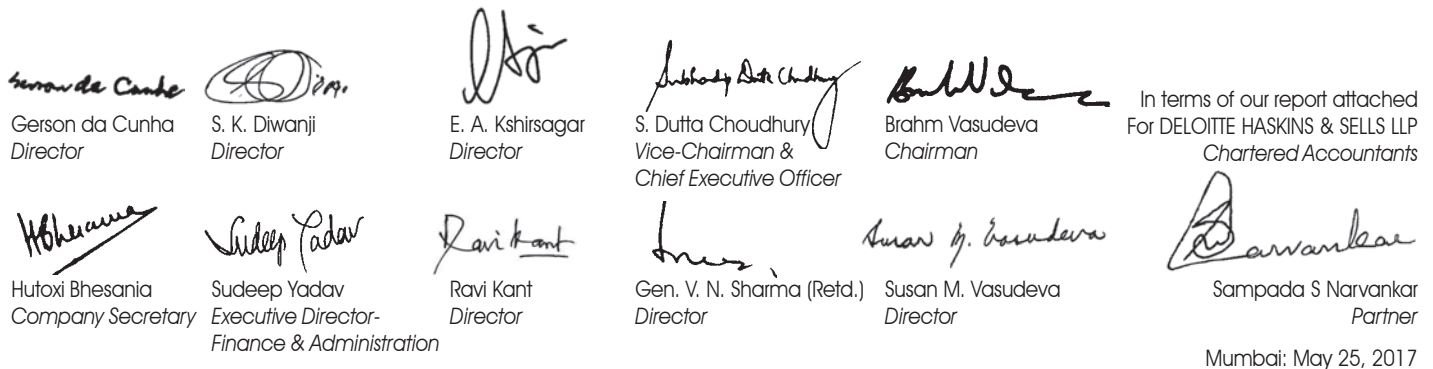 Gerson da Cunha
Gerson da Cunha
Director
S. K. Diwanji
Director
E. A. Kshirsagar
Director
Subhadip Dutta Choudhury
S. Dutta Choudhury
Vice-Chairman &
Chief Executive Officer
Brahm Vasudeva
Chairman
In terms of our report attached
For DELOITTE HASKINS & SELLS LLP
Chartered Accountants
HBhesania
Hutoxi Bhesania
Company Secretary
Sudeep Yadav
Sudeep Yadav
Executive Director-
Finance & Administration
Ravi Kant
Ravi Kant
Director
Gen. V. N. Sharma (Retd.)
Director
Susan M. Vasudeva
Susan M. Vasudeva
Director
Sampada S Narvankar
Partner
Mumbai: May 25, 2017